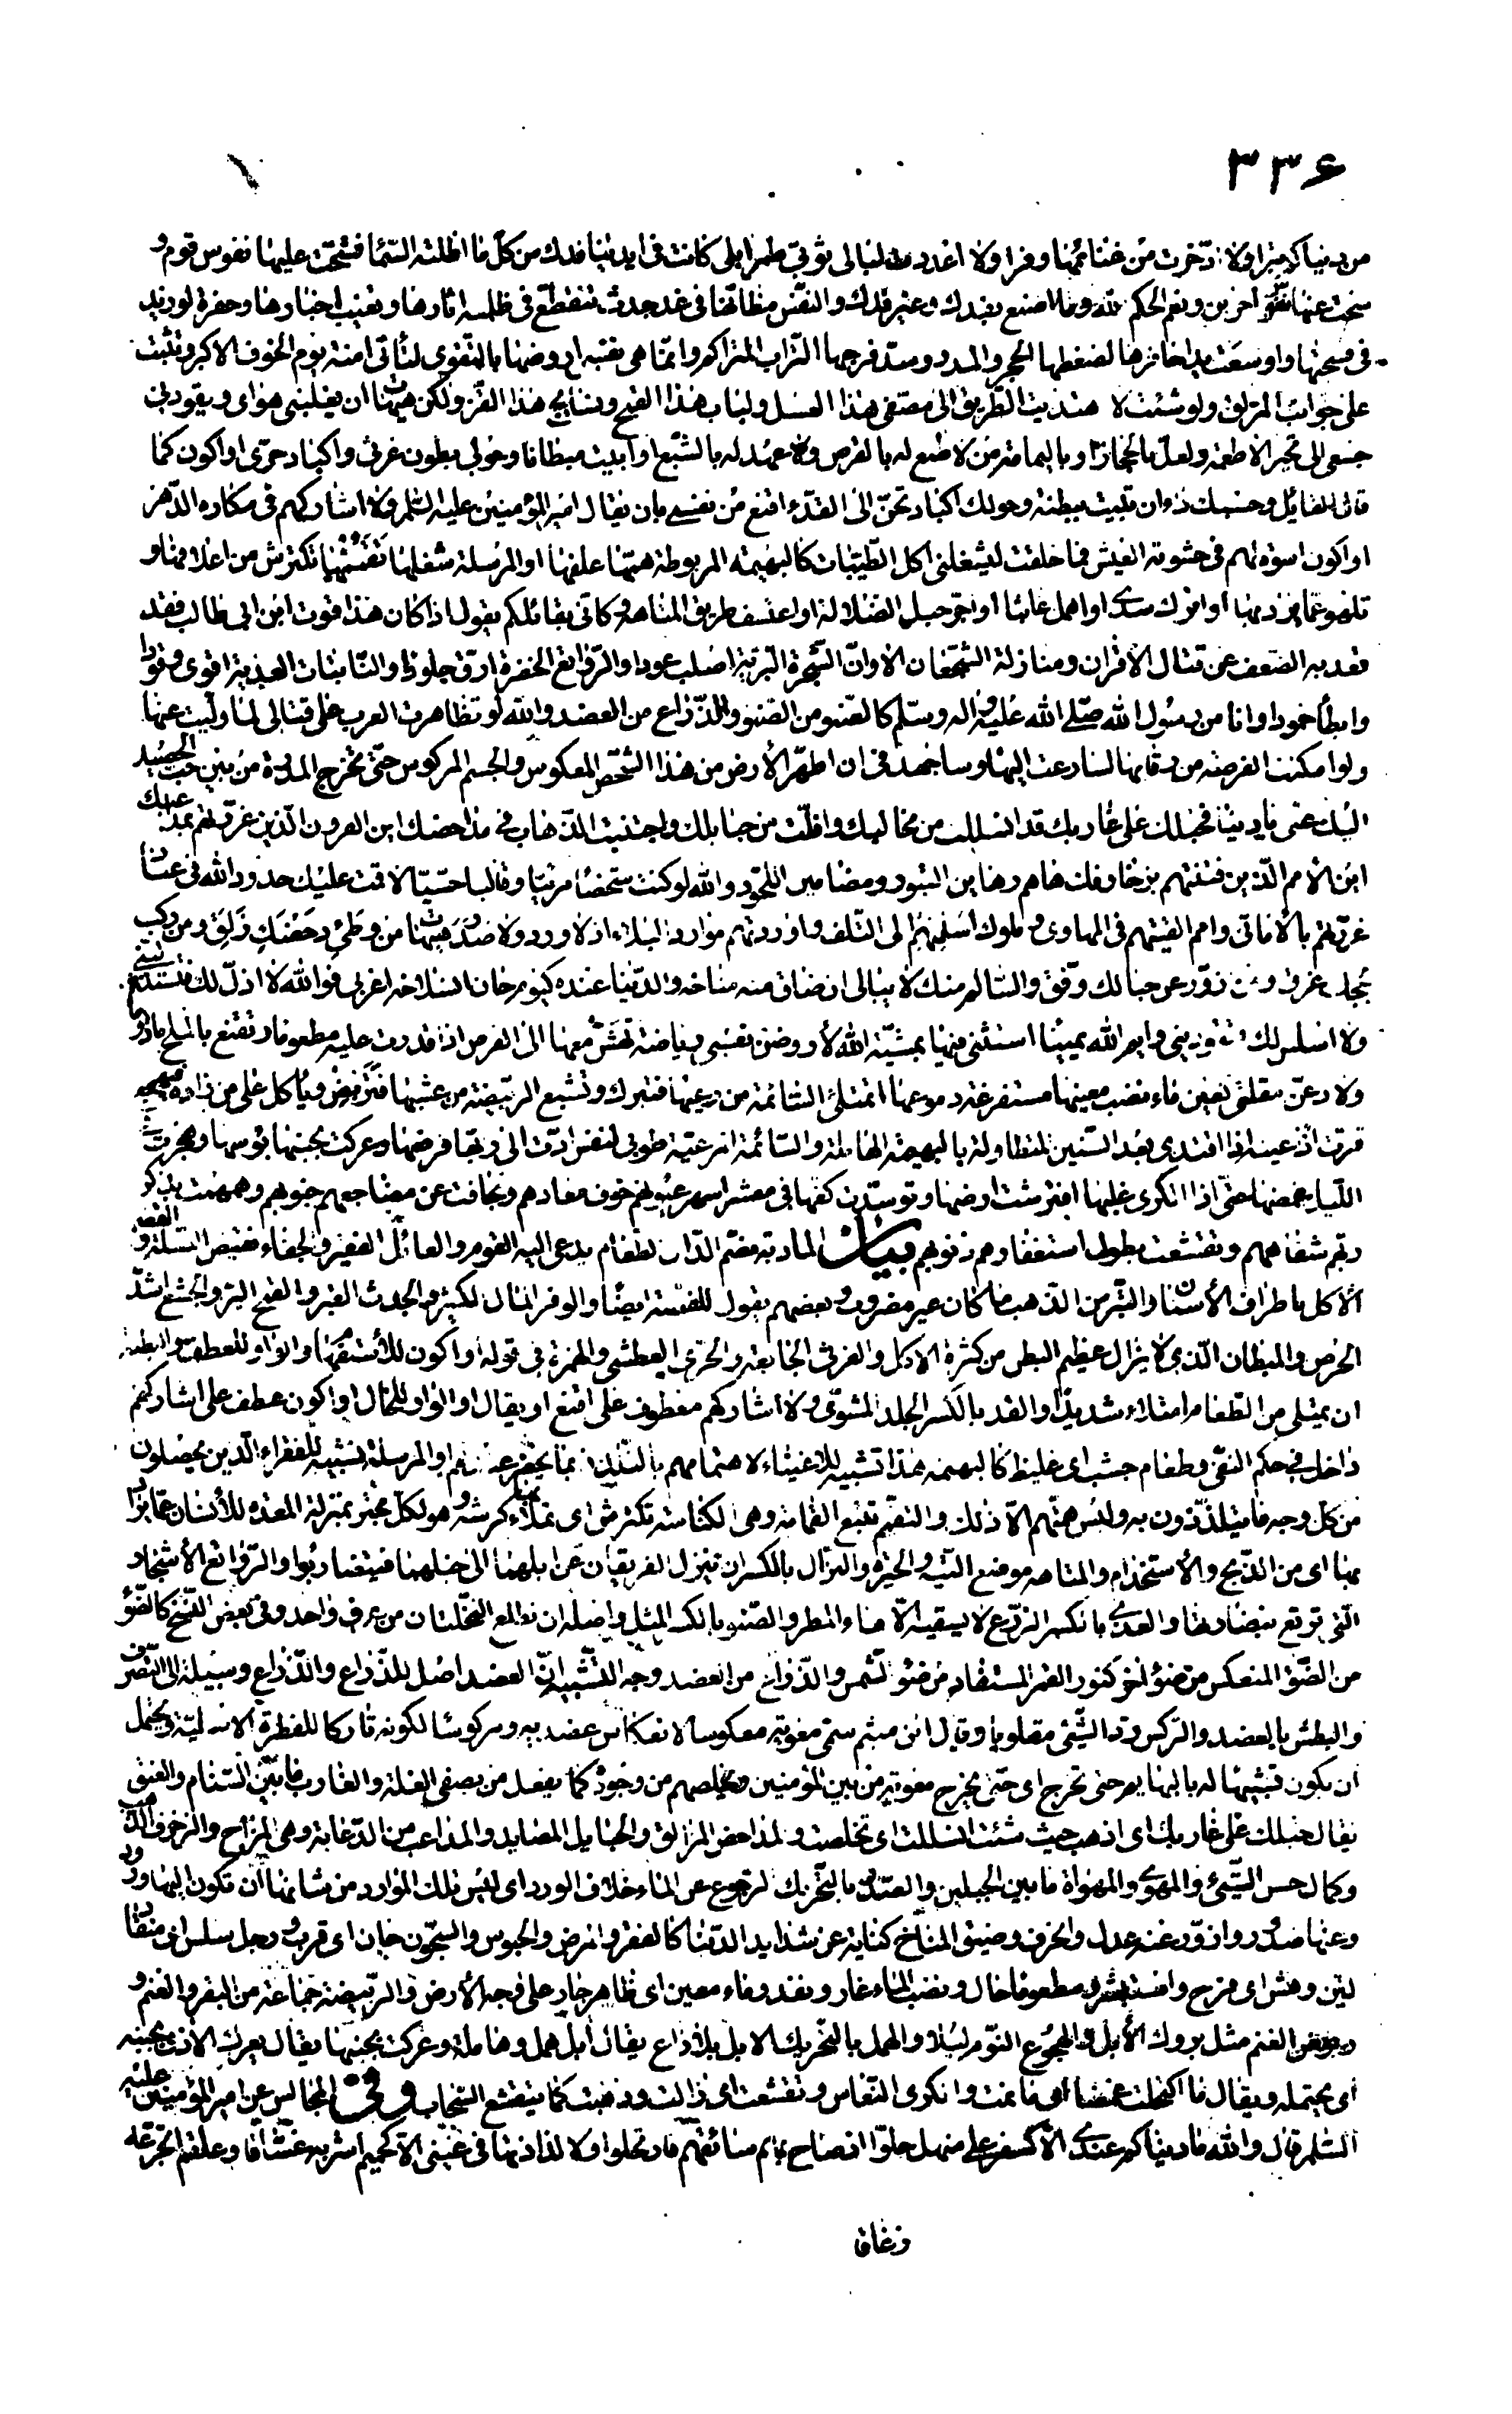 ٣٣٦
من دنياكم تبرا ولا ادّخرت من غنائمها وفرا ولا اعددت لبالى ثوبى طمرا بلى كانت فى ايدينا فدك من كلّ ما اظلته السّماء فشحّت عليها نفوس قوم و
سخت عنها نفوس اخرين ونعم الحكم الله وما اصنع بفدك وغير فدك والنفس مظانّها فى غد جدث تنقطع فى ظلمته اثارها وتغيب اخبارها وحفرة لو زيد
فى فسحتها واوسعت يدا حافرها لضغطها الحجر والمدر وسدّ فرجها التّراب المتراكم وانّما هى نفسى اروضها بالتقوى لتأتى امنة يوم الخوف الاكبر وتثبت
على جوانب المزلق ولو شئت لاهتديت الطّريق الى مصفى هذا العسل ولباب هذا القمح ونسايج هذا القز ولكن هيهات ان يغلبنى هواى ويقودنى
جشعى الى تخيّر الاطعمة ولعلّ بالحجاز او باليمامة من لا طمع له بالقرص ولا عهد له بالشّبع او ابيت مبطانا وحولى بطون غرثى واكباد حرّى او اكون كما
قال القايل وحسبك داء ان تبيت ببطنة وحولك اكباد تحنّ الى القدّ ءاقنع من نفسى بان يقال امير المؤمنين عليه السّلم ولا اشاركهم فى مكاره الدّهر
او اكون اسوة لهم فى جشوبة العيش فما خلقت ليشغلنى اكل الطّيّبات كالبهيمة المربوطة همّها علفها او المرسلة شغلها تقمّمها تكترش من اعلافها و
تلهو عمّا يراد بها او اترك سدى او اهمل عابثا او اجرّ حبل الضّلالة او اعتسف طريق المتاهة وكانّى بقائلكم يقول اذا كان هذا قوت ابن ابى طالب فقد
قعد به الضّعف عن قتال الاقران ومنازلة الشّجعان الا وانّ الشّجرة البرّيّة اصلب عودا والرّوايع الخضرة ارق جلودا والنّابتات العذية اقوى وقودا
وابطأ خمودا وانا من رسول الله صلّى الله عليه واله وسلّم كالصّنو من الصّنو والذّراع من العضد والله لو تظاهرت العرب على قتالى لما ولّيت عنها
ولو امكنت الفرصة من رقابها لسارعت اليها وساجهد فى ان اطهّر الأرض من هذا الشّخص المعكوس والجسم المركوس حتّى تخرج المدرة من بين حبّ الحصيد
اليك عنّى يا دنيا فحبلك على غاربك قد انسللت من مخالبك وافلتّ من حبايلك واجتنبت الذّهاب فى مداحضك اين القرون الّذين غررتهم بمداعبك
اين الأمم الّذين فتنتهم بزخارفك هاهم رهاين القبور ومضامين اللّحود والله لو كنت شخصا مرئيّا وقالبا حسّيّا لاقمت عليك حدود الله فى عباد
غررتهم بالأمانى وامم القيتهم فى المهاوى وملوك اسلمتهم الى التّلف واوردتهم موارد البلاء اذ لا ورد ولا صدر هيهات من وطئ دحضك زلق ومن ركب
لججك غرق ومن ازورّ عن حبالك وفّق والسّالم منك لا يبالى ان ضاق منه مناخه والدّنيا عنده كيوم حان انسلاخه اعزبى فوالله لا اذلّ لك فتستذلّينى
ولا اسلس لك فتقودينى وايم الله يمينا استثنى فيها بمشيّة الله لأروضنّ نفسى رياضة تهشّ معها الى القرص اذا قدرت عليه مطعوما وتقنع بالملح مادوما
ولادعنّ مقلتى كعين ماء نضب معينها مستفرغة دموعها اتمتلئ السّائمة من رعيها فتبرك وتشبع الرّبيضة من عشبها فتربض ويأكل على من زاده فيهجع
قرّت اذا عينه اذا اقتدى بعد السّنين المتطاولة بالبهيمة الهاملة والسّائمة المرعيّة طوبى لنفس ادّت الى ربّها فرضها وعركت بجنبها بؤسها وهجرت فى
اللّيل غمضها حتّى اذا الكرى غلبها افترشت ارضها وتوسّدت كفّها فى معشر اسهر عيونهم خوف معادهم وتجافت عن مضاجعهم جنوبهم وهمهمت بذكر
ربّهم شفاههم وتقشّعت بطول استغفارهم ذنوبهم بيان المادبة بضمّ الدّال الطّعام يدعى اليه القوم والعائل الفقير والجفاء نقيض الصّلة والقضم
الأكل باطراف الأسنان والتّبر من الذّهب ما كان غير مضروب وبعضهم يقول للفضّة ايضًا والوفر المال الكثير والجدث القبر والقمح البرّ والجشع اشدّ
الحرص والمبطان الّذى لا يزال عظيم البطن من كثرة الاكل والغرثى الجائعة والحرّى العطشى والهمزة فى قوله او اكون للأستفهام والواو للعطف والبطنة
ان يمتلى من الطّعام امتلاء شديدا والقد بالكسر الجلد المشوىّ ولا اشاركهم معطوف على اقنع او يقال والواو للحال او اكون عطف على اشاركهم
داخل فى حكم النفى وطعام جشب اى غليظ كالبهيمة هذا تشبيه للاغنياء لاهتمامهم بالتّلذذ بما يحضر عندهم والمرسلة تشبيه للفقراء الّذين يحصلون
من كلّ وجه ما يتلذّذون به وليس همّهم الّا ذلك والتقمّم تتبع القمامة وهى الكناسة تكترش اى تملأ بها كرشها وهو لكلّ مجترّ بمنزلة المعدة للأنسان عمّا يراد
بها اى من الذّبح والأستخدام والمتاهه موضع التّيه والحيرة والنزال بالكسر ان تنزل الفريقان عن ابلهما الى خيلهما فيتضاربوا والرّوايع الأشجار
الّتى تروع بنضارتها والعذى بالكسر الزّرع لا يسقيه الّا ماء المطر والصّنو بالكسر المثل واصله ان تطلع النخلتان من عرق واحد وفى بعض النّسخ كالضّوء
من الضّوء المنعكس من ضوء اخر كنور القمر المستفاد من ضوء الشّمس والذّراع من العضد وجه التّشبيه انّ العضد اصل للذّراع والذّراع وسيلة الى التّصرّف
والبطش بالعضد والرّكس ردّ الشّئ مقلوبا وقال ابن ميثم سمّى معوية معكوسا لانعكاس عقيدته ومركوسًا لكونه تاركا للفطرة الاصليّة ويحتمل
ان يكون تشبيها له بالبهايم حتى تخرج اى حتّى يخرج معوية من بين المؤمنين ويخلصهم من وجوده كما يفعل من يصفى الغلة والغارب ما بين السّنام والعنق
يقال حبلك على غاربك اى اذهب حيث شئت انسللت اى تخلصت والمداحض المزالق والحبايل المصايد والمداعب من الدّعابة وهى المزاح والزخرف الذّهب
وكمال حسن الشّئ والمهوى والمهواة ما بين الجبلين والصّدر بالتّحريك الرجوع عن الماء خلاف الورد اى ليس تلك الموارد من شانها ان تكون اليها ورود
وعنها صدور وازورّ عنه عدل وانحرف وضيق المناخ كناية عن شدايد الدّنيا كالفقر والمرض والحبوس والسجون حان اى قرب ورجل سلس اى منقاد
ليّن وهشّ اى فرح واستبشر ومطعوما حال ونضب الماء غار ونفد وماء معين اى ظاهر جار على وجه الأرض والرّبيضة جماعة من البقر والغنم و
ربوض الغنم مثل بروك الأبل والهجوع النّوم ليلا والهمل بالتّحريك الابل بلا راع يقال ابل همل وهاملة وعركت بجنبها يقال يعرك الاذى بجنبه
اى يحتمله ويقال ما اكتحلت غمضا اى ما نمت والكرى النّعاس وتقشّعت اى زالت وذهبت كما يتقشع السّحاب وفى المجالس عن امير المؤمنين عليه
السّلم قال والله ما دنياكم عندى الّا كسفر على منهل حلّوا اذ صاح بهم سائقهم فارتحلوا ولا لذاذتها فى عينى الّا كحميم اشربه غسّاقا وعلقم اتجرّعه
زعاقا